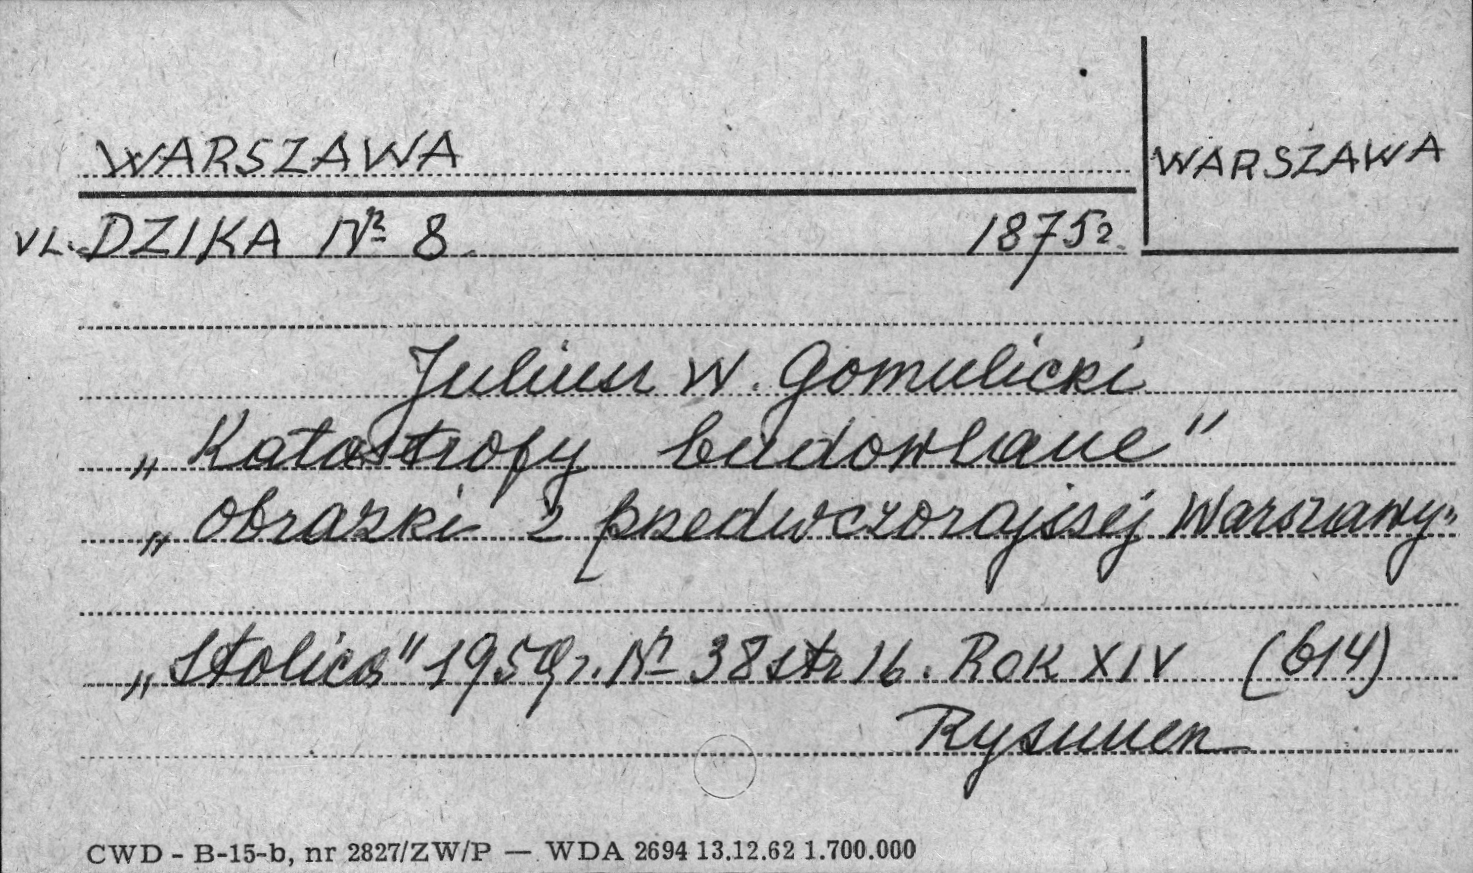 WARSZAWA
WARSZAWA
UL. DZIKA Nr 8 1875 r.
Juliusz W. Gomulicki
„Katastrofy budowlane"
„Obrazki z przedwczorajszej Warszawy"
„Stolica" 1959 r. Nr 38 str 16. ROK XIV (614)
Rysunek
CWD - B-15-b, nr 2827/ZW/P — WDA 2694 13.12.62 1.700.000